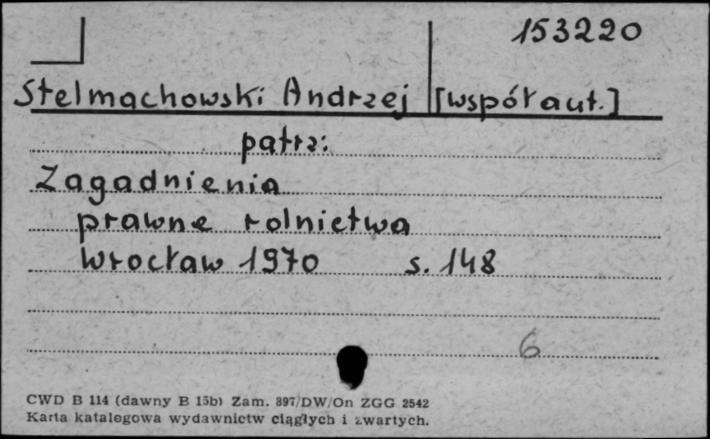 153220
Stelmachowski Andrzej [współaut.]
patrz:
Zagadnienia
prawne rolnictwa
Wrocław 1970 s. 148
6
CWD B 114 (dawny B 15b) Zam. 897/DW/On ZGG 2542
Karta katalogowa wydawnictw ciągłych i zwartych.